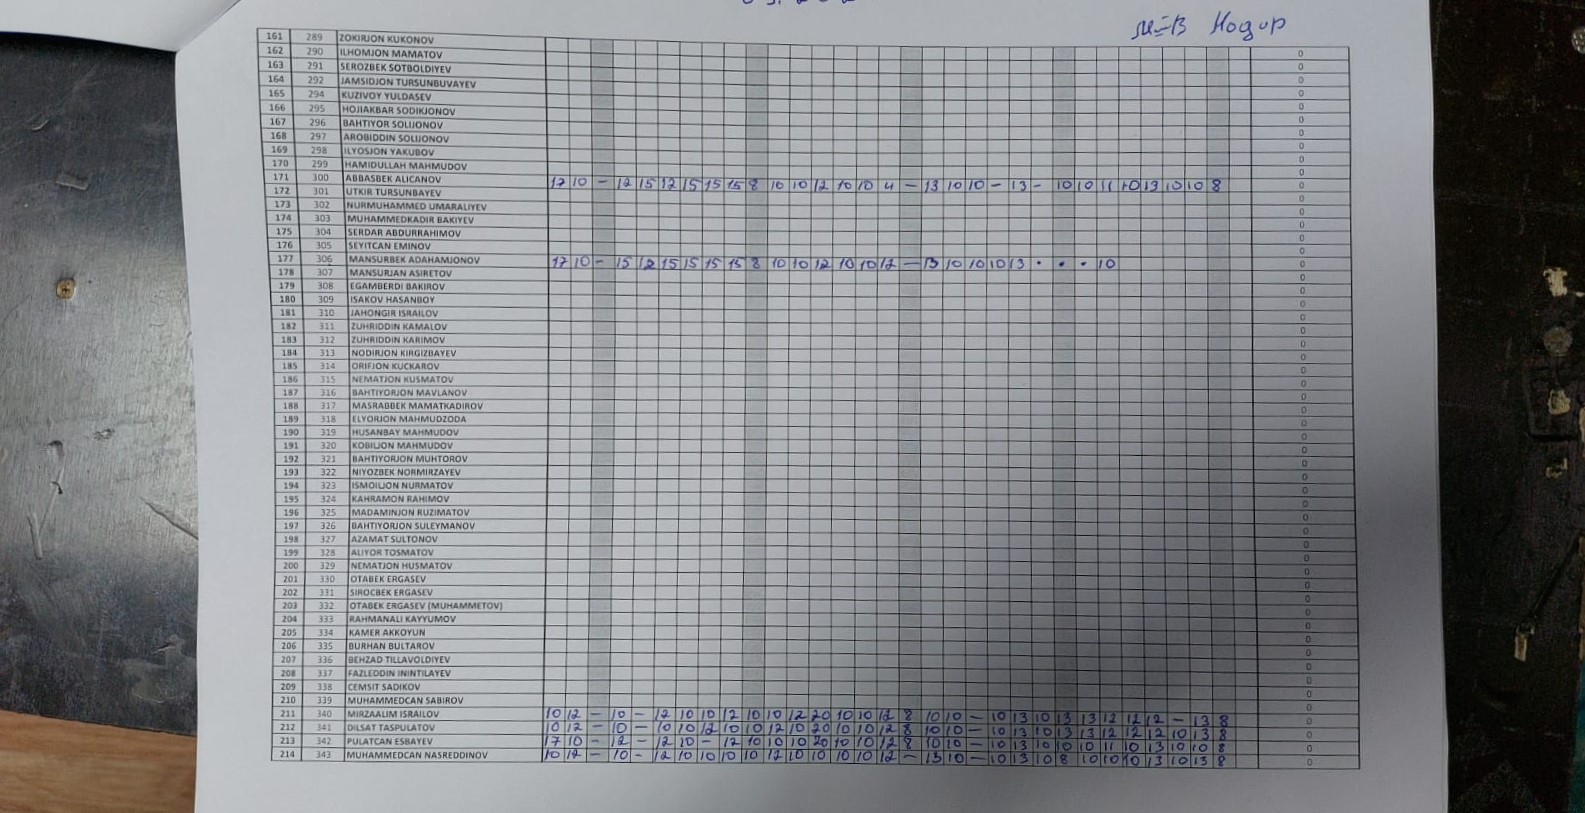 м=В Нодир
161 289 ZOKIRJON KUKONOV
162 290 ILHOMJON MAMATOV 0
163 291 SEROZBEK SOTBOLDIYEV 0
164 292 JAMSIDJON TURSUNBUVAYEV 0
165 294 KUZIVOY YULDASEV 0
166 295 HOJIAKBAR SODIKJONOV 0
167 296 BAHTIYOR SOLIJONOV 0
168 297 AROBIDDIN SOLIJONOV 0
169 298 ILYOSJON YAKUBOV 0
170 299 HAMIDULLAH MAHMUDOV 0
171 300 ABBASBEK ALICANOV 17 10 - 12 15 12 15 15 15 8 10 10 12 10 10 4 - 13 10 10 - 13 - 10 10 11 10 13 10 10 8 0
172 301 UTKIR TURSUNBAYEV 0
173 302 NURMUHAMMED UMARALIYEV 0
174 303 MUHAMMEDKADIR BAKIYEV 0
175 304 SERDAR ABDURRAHIMOV 0
176 305 SEYITCAN EMINOV 0
177 306 MANSURBEK ADAHAMJONOV 17 10 - 15 12 15 15 15 15 8 10 10 12 10 10 12 - 13 10 10 10 13 · · · 10 0
178 307 MANSURJAN ASIRETOV 0
179 308 EGAMBERDI BAKIROV 0
180 309 ISAKOV HASANBOY 0
181 310 JAHONGIR ISRAILOV 0
182 311 ZUHRIDDIN KAMALOV 0
183 312 ZUHRIDDIN KARIMOV 0
184 313 NODIRJON KIRGIZBAYEV 0
185 314 ORIFJON KUCKAROV 0
186 315 NEMATJON KUSMATOV 0
187 316 BAHTIYORJON MAVLANOV 0
188 317 MASRABBEK MAMATKADIROV 0
189 318 ELYORJON MAHMUDZODA 0
190 319 HUSANBAY MAHMUDOV 0
191 320 KOBILJON MAHMUDOV 0
192 321 BAHTIYORJON MUHTOROV 0
193 322 NIYOZBEK NORMIRZAYEV 0
194 323 ISMOILJON NURMATOV 0
195 324 KAHRAMON RAHIMOV 0
196 325 MADAMINJON RUZIMATOV 0
197 326 BAHTIYORJON SULEYMANOV 0
198 327 AZAMAT SULTONOV 0
199 328 ALIYOR TOSMATOV 0
200 329 NEMATJON HUSMATOV 0
201 330 OTABEK ERGASEV 0
202 331 SIROCBEK ERGASEV 0
203 332 OTABEK ERGASEV (MUHAMMETOV) 0
204 333 RAHMANALI KAYYUMOV 0
205 334 KAMER AKKOYUN 0
206 335 BURHAN BULTAROV 0
207 336 BEHZAD TILLAVOLDIYEV 0
208 337 FAZLEDDIN ININTILAYEV 0
209 338 CEMSIT SADIKOV 0
210 339 MUHAMMEDCAN SABIROV 0
211 340 MIRZAALIM ISRAILOV 10 12 - 10 - 12 10 10 12 10 10 12 20 10 10 12 8 10 10 - 10 13 10 13 13 12 12 12 - 13 8 0
212 341 DILSAT TASPULATOV 10 12 - 10 - 10 10 12 10 10 12 10 20 10 10 12 8 10 10 - 10 13 10 13 13 12 12 12 10 13 8 0
213 342 PULATCAN ESBAYEV 17 10 - 12 - 12 10 - 12 10 10 10 20 10 10 12 8 10 10 - 10 13 10 10 10 11 10 13 10 10 8 0
214 343 MUHAMMEDCAN NASREDDINOV 10 12 - 10 - 12 10 10 10 10 12 10 10 10 10 12 - 13 10 - 10 13 10 8 10 10 10 13 10 13 8 0